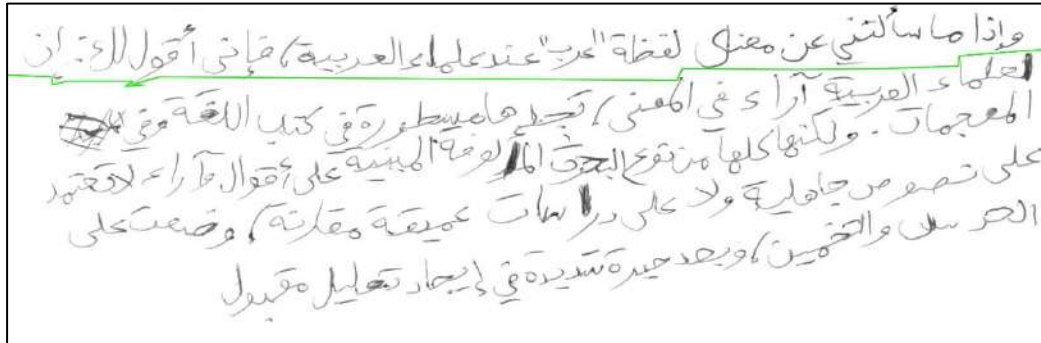 وإذا ما سألتني عن معنى لفظة "عرب" عند علماء العربية، فإني أقول لك: إن
لعلماء العربية آراء في المعنى، تجدها مسطورة في كتب اللغة وفي
المعجمات. ولكنها كلها من نوع البحوث المألوفة المبنية على أقوال وآراء لا تعتمد
على نصوص جاهلية ولا على دراسات عميقة مقارنة، وضعت على
الحدس والتخمين، وبعد حيرة شديدة في إيجاد تعليل مقبول